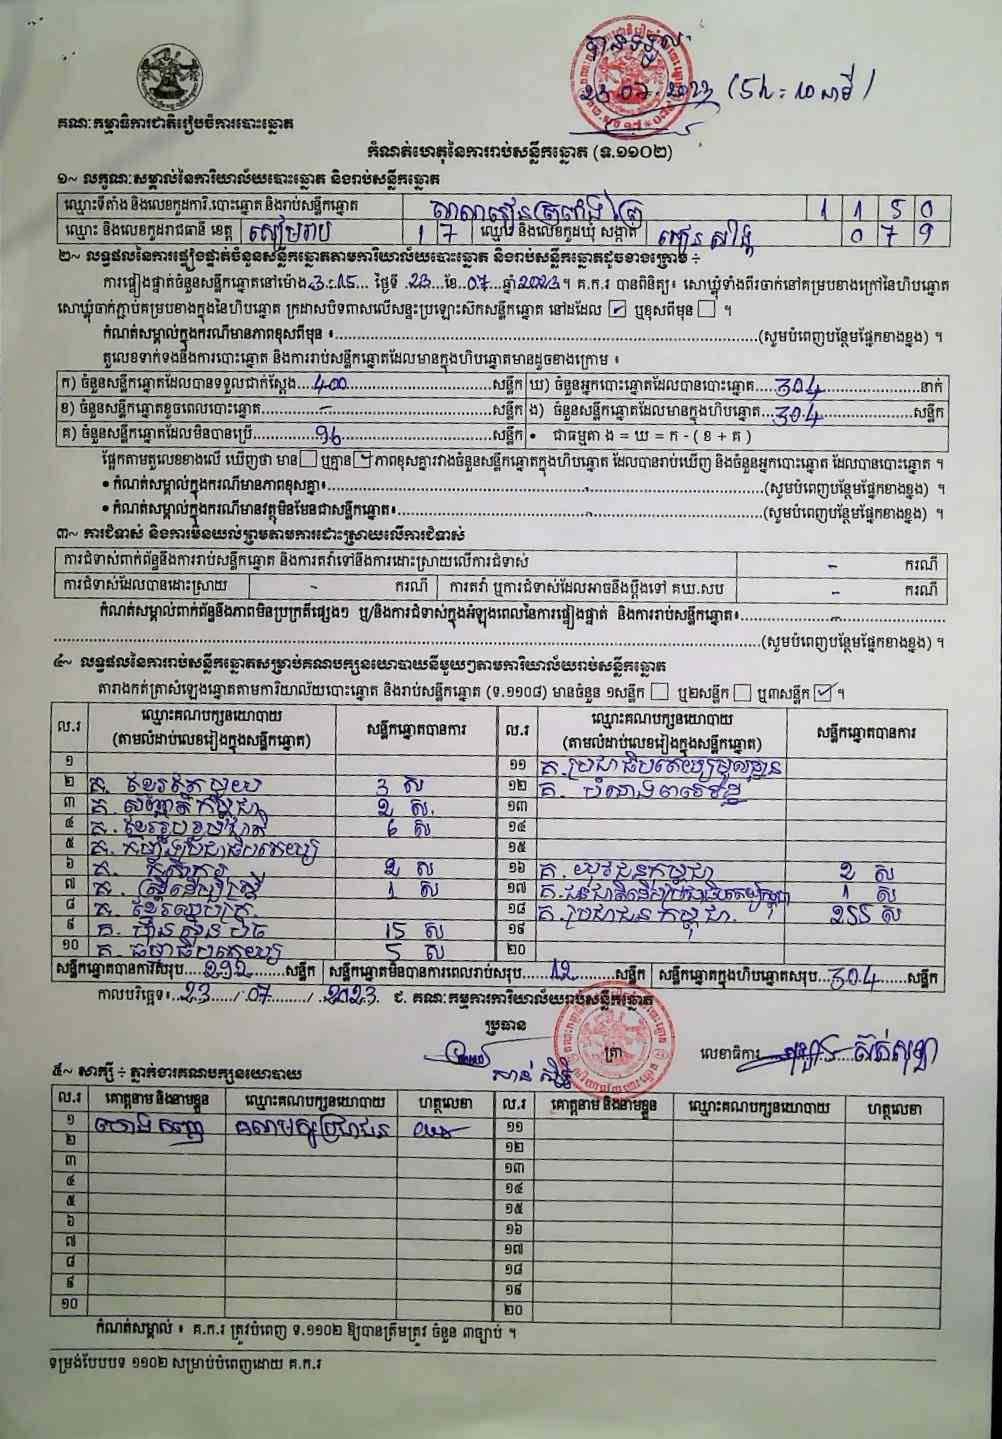 ២៣.០៧.២០២៣ (5h = 10 នាទី)
គណៈកម្មាធិការជាតិរៀបចំការបោះឆ្នោត
កំណត់ហេតុនៃការរាប់សន្លឹកឆ្នោត (ទ.១១០២)
១~ លក្ខណៈសម្គាល់នៃការិយាល័យបោះឆ្នោត និងរាប់សន្លឹកឆ្នោត
ឈ្មោះទីតាំង និងលេខកូដការិ.បោះឆ្នោត និងរាប់សន្លឹកឆ្នោត 1 1 5 0
ឈ្មោះ និងលេខកូដរាជធានី ខេត្ត សៀមរាប 1 7 ឈ្មោះ និងលេខកូដឃុំ សង្កាត់ 0 7 9
២~ លទ្ធផលនៃការផ្ទៀងផ្ទាត់ចំនួនសន្លឹកឆ្នោតតាមការិយាល័យបោះឆ្នោត និងរាប់សន្លឹកឆ្នោតដូចខាងក្រោម ÷
ការផ្ទៀងផ្ទាត់ចំនួនសន្លឹកឆ្នោតនៅម៉ោង 3:15 ថ្ងៃទី 23 ខែ 07 ឆ្នាំ 2023 ។ គ.ក.រ បានពិនិត្យ៖ សោឃ្លុំទាំងពីរចាក់នៅគម្របខាងក្រៅនៃហិបឆ្នោត
សោឃ្លុំចាក់ភ្ជាប់គម្របខាងក្នុងនៃហិបឆ្នោត ក្រដាសបិទពាសលើសន្ទះប្រឡោះស៊កសន្លឹកឆ្នោត នៅដដែល ☑ ឬខុសពីមុន ☐ ។
កំណត់សម្គាល់ក្នុងករណីមានភាពខុសពីមុន ៖ (សូមបំពេញបន្ថែមផ្នែកខាងខ្នង) ។
តួលេខទាក់ទងនឹងការបោះឆ្នោត និងការរាប់សន្លឹកឆ្នោតដែលមានក្នុងហិបឆ្នោតមានដូចខាងក្រោម ៖
ក) ចំនួនសន្លឹកឆ្នោតដែលបានទទួលជាក់ស្ដែង 400 សន្លឹក ឃ) ចំនួនអ្នកបោះឆ្នោតដែលបានបោះឆ្នោត 304 នាក់
ខ) ចំនួនសន្លឹកឆ្នោតខូចពេលបោះឆ្នោត - សន្លឹក ង) ចំនួនសន្លឹកឆ្នោតដែលមានក្នុងហិបឆ្នោត 304 សន្លឹក
គ) ចំនួនសន្លឹកឆ្នោតដែលមិនបានប្រើ 96 សន្លឹក • ជាធម្មតា ង = ឃ = ក - ( ខ + គ )
ផ្អែកតាមតួលេខខាងលើ ឃើញថា មាន ☐ ឬគ្មាន ☑ ភាពខុសគ្នារវាងចំនួនសន្លឹកឆ្នោតក្នុងហិបឆ្នោត ដែលបានរាប់ឃើញ និងចំនួនអ្នកបោះឆ្នោត ដែលបានបោះឆ្នោត ។
• កំណត់សម្គាល់ក្នុងករណីមានភាពខុសគ្នា៖ (សូមបំពេញបន្ថែមផ្នែកខាងខ្នង) ។
• កំណត់សម្គាល់ក្នុងករណីមានវត្ថុមិនមែនជាសន្លឹកឆ្នោត៖ (សូមបំពេញបន្ថែមផ្នែកខាងខ្នង) ។
៣~ ការជំទាស់ និងការមិនយល់ព្រមតាមការដោះស្រាយលើការជំទាស់
ការជំទាស់ពាក់ព័ន្ធនឹងការរាប់សន្លឹកឆ្នោត និងការតវ៉ាទៅនឹងការដោះស្រាយលើការជំទាស់ - ករណី
ការជំទាស់ដែលបានដោះស្រាយ - ករណី ការតវ៉ា ឬការជំទាស់ដែលអាចនឹងប្ដឹងទៅ គឃ.សប - ករណី
កំណត់សម្គាល់ពាក់ព័ន្ធនឹងភាពមិនប្រក្រតីផ្សេងៗ ឬ/និងការជំទាស់ក្នុងអំឡុងពេលនៃការផ្ទៀងផ្ទាត់ និងការរាប់សន្លឹកឆ្នោត៖
(សូមបំពេញបន្ថែមផ្នែកខាងខ្នង) ។
៤~ លទ្ធផលនៃការរាប់សន្លឹកឆ្នោតសម្រាប់គណបក្សនយោបាយនីមួយៗតាមការិយាល័យរាប់សន្លឹកឆ្នោត
តារាងកត់ត្រាសំឡេងឆ្នោតតាមការិយាល័យបោះឆ្នោត និងរាប់សន្លឹកឆ្នោត (ទ.១១០៨) មានចំនួន ១សន្លឹក ☐ ឬ២សន្លឹក ☐ ឬ៣សន្លឹក ☑ ។
ល.រ ឈ្មោះគណបក្សនយោបាយ (តាមលំដាប់លេខរៀងក្នុងសន្លឹកឆ្នោត) សន្លឹកឆ្នោតបានការ ល.រ ឈ្មោះគណបក្សនយោបាយ (តាមលំដាប់លេខរៀងក្នុងសន្លឹកឆ្នោត) សន្លឹកឆ្នោតបានការ
១ ១១ គ.ប្រជាធិបតេយ្យមូលដ្ឋាន
២ គ. ខ្មែរតែមួយ 3 ស ១២
៣ គ. សញ្ជាតិកម្ពុជា 2 ស. ១៣
៤ គ.ខ្មែររួបរួមជាតិ 6 ស ១៤
៥ ១៥
៦ គ. កសិករ 2 ស ១៦ គ. យុវជនកម្ពុជា 2 ស
៧ គ. ស្ត្រីដើម្បីស្ត្រី 1 ស ១៧ 1 ស
៨ ១៨ គ.ប្រជាជនកម្ពុជា. 255 ស
៩ 15 ស ១៩
១០ គ. ធម្មាធិបតេយ្យ 5 ស ២០
សន្លឹកឆ្នោតបានការសរុប 292 សន្លឹក សន្លឹកឆ្នោតមិនបានការពេលរាប់សរុប 12 សន្លឹក សន្លឹកឆ្នោតក្នុងហិបឆ្នោតសរុប 304 សន្លឹក
កាលបរិច្ឆេទ៖ 23 / 07 / 2023 ជ. គណៈកម្មការការិយាល័យរាប់សន្លឹកឆ្នោត
ប្រធាន
ត្រា លេខាធិការ
៥~ សាក្សី ÷ ភ្នាក់ងារគណបក្សនយោបាយ
ល.រ គោត្តនាម និងនាមខ្លួន ឈ្មោះគណបក្សនយោបាយ ហត្ថលេខា ល.រ គោត្តនាម និងនាមខ្លួន ឈ្មោះគណបក្សនយោបាយ ហត្ថលេខា
១ ១១
២ ១២
៣ ១៣
៤ ១៤
៥ ១៥
៦ ១៦
៧ ១៧
៨ ១៨
៩ ១៩
១០ ២០
កំណត់សម្គាល់ ៖ គ.ក.រ ត្រូវបំពេញ ទ.១១០២ ឱ្យបានត្រឹមត្រូវ ចំនួន ៣ច្បាប់ ។
ទម្រង់បែបបទ ១១០២ សម្រាប់បំពេញដោយ គ.ក.រ